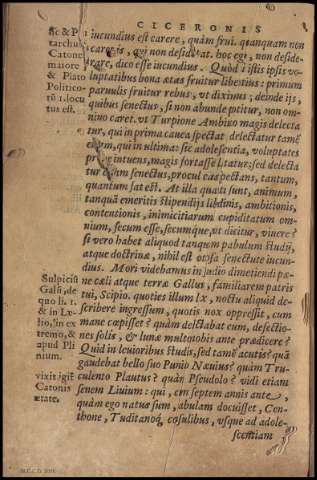 CICERONIS
Sic & Plu
tarchus
Catone
maiore
& Plato
Politico-
rũ 1. locu
tus est.
iucundius est carere, quàm frui. quanquam non
caret is, qui non desiderat. hoc egi, non deside-
rare, dico esse iucundius. Quòd si istis ipsis vo-
luptatibus bona ætas fruitur libentius: primum
paruulis fruitur rebus, vt diximus; deinde ijs,
quibus senectus, si non abunde potitur, non om-
nino caret. vt Turpione Ambiuio magis delecta
tur, qui in prima cauea spectat, delectatur tamẽ
etiam, qui in ultima: sic adolescentia, voluptates
intuens, magis fortasse lætatur: sed delecta
tur etiam senectus, procul eas spectans, tantum,
quantum sat est. At illa quanti sunt, animum,
tanquã emeritis stipendijs libidinis, ambitionis,
contentionis, inimicitiarum cupiditatum om-
nium, secum esse, secumque, vt dicitur, viuere?
si vero habet aliquod tanquam pabulum studij,
atque doctrinæ, nihil est otiosa senectute iucun-
dius. Mori videbamus in studio dimetiendi pæ-
ne cæli atque terræ Gallus, familiarem patris
tui, Scipio. quoties illum lx, noctu aliquid de-
scribere ingressum, quotis nox oppressit, cum
mane cœpisset? quàm delectabat eum, defectio-
nes solis, & lunæ multo nobis ante prædicere?
Quid in leuioribus studijs, sed tamẽ acutis? quã
gaudebat bello suo Punio Næuius? quàm Tru-
culento Plautus? quàm Pseudolo? vidi etiam
senem Liuium: qui, cùm septem annis ante,
quàm ego natus sum, fabulam docuisset, Cen-
thone, Tuditanoq́; cosulibus, vsque ad adole-
scentiam
Sulpicius
Gallus, de
quo li. 1.
& in Læ-
lio, in ex
tremo, &
apud Pli
nium.
vixit igit
Catonis
ætate.